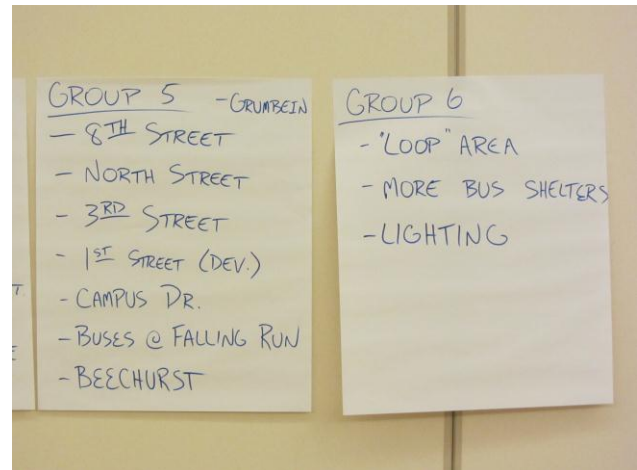 GROUP 5 - GRUMBEIN
- 8TH STREET
- NORTH STREET
- 3RD STREET
- 1ST STREET (DEV.)
- CAMPUS DR.
- BUSES @ FALLING RUN
- BEECHURST
GROUP 6
- "LOOP" AREA
- MORE BUS SHELTERS
- LIGHTING